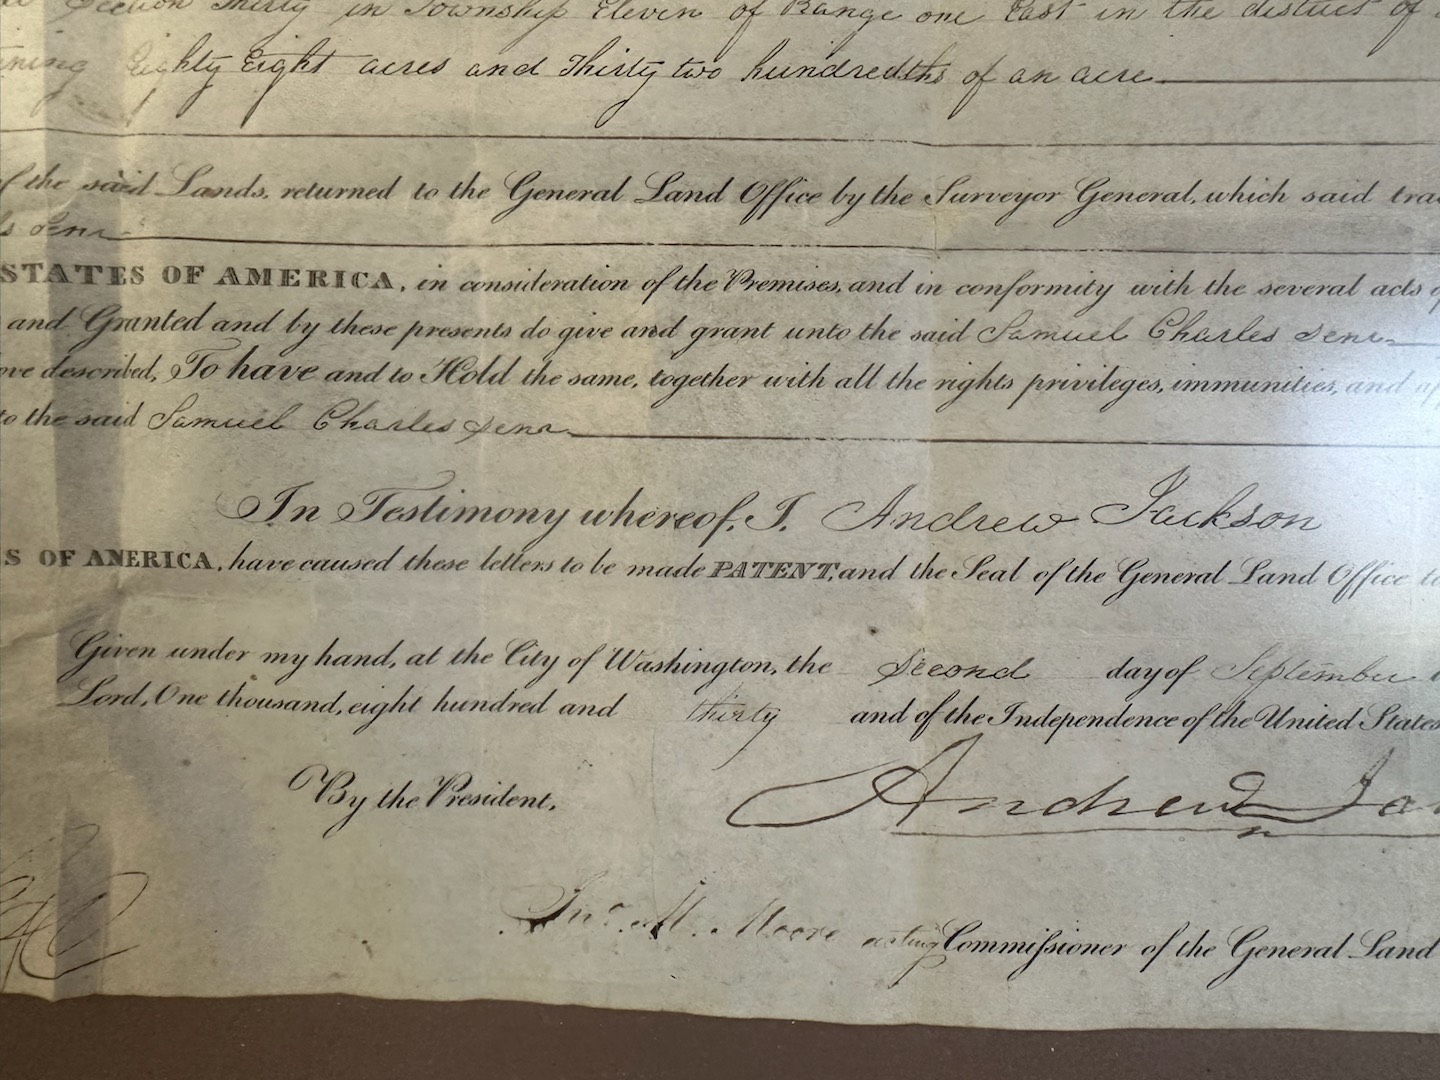 Section Thirty in Township Eleven of Range one East in the district of
Eighty Eight acres and Thirty two hundredths of an acre
of the said Lands, returned to the General Land Office by the Surveyor General, which said
STATES OF AMERICA, in consideration of the Premises, and in conformity with the several acts
and Granted and by these presents do give and grant unto the said Samuel Charles Senr
described, To have and to Hold the same, together with all the rights privileges, immunities, and
to the said Samuel Charles Senr
In Testimony whereof, I, Andrew Jackson
S OF AMERICA, have caused these letters to be made PATENT, and the Seal of the General Land Office
Given under my hand, at the City of Washington, the Second day of September
Lord, One thousand, eight hundred and thirty and of the Independence of the United States
By the President, Andrew
Jno. M. Moore acting Commissioner of the General Land